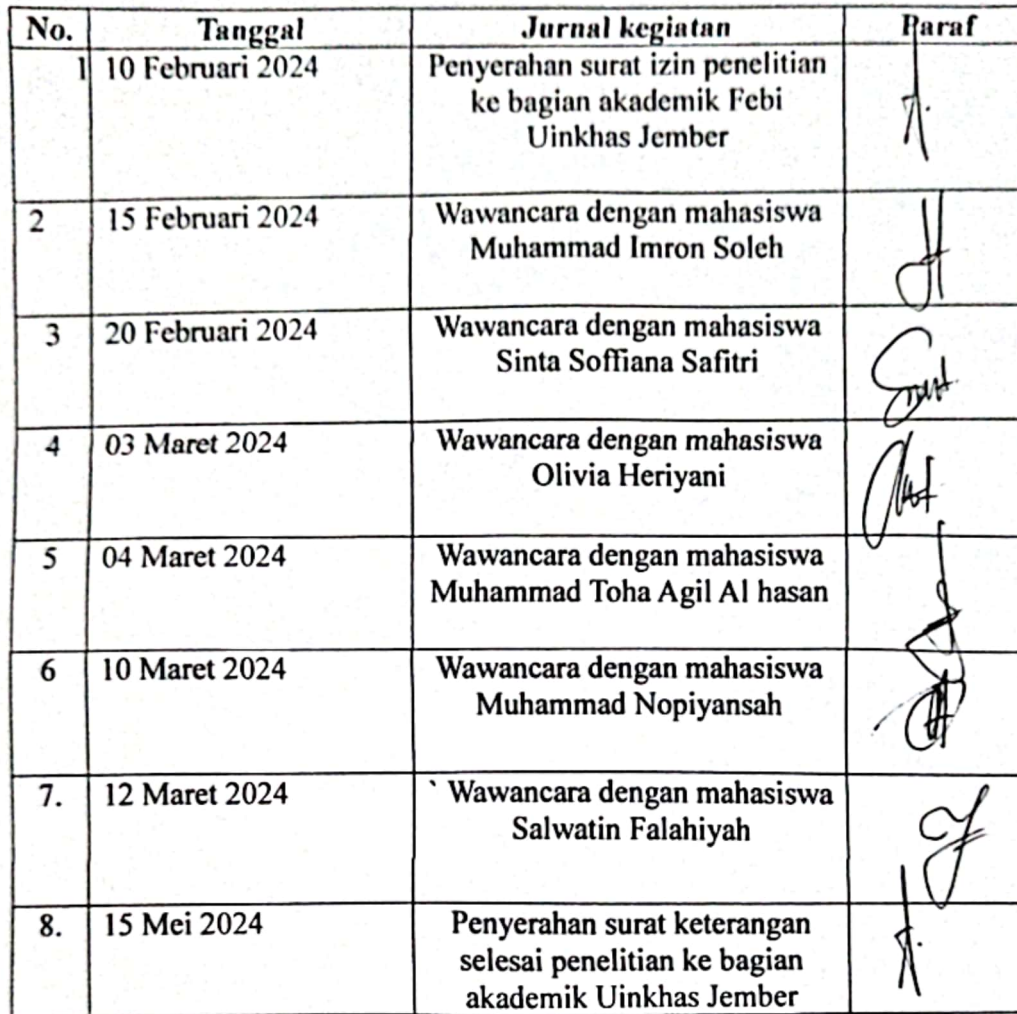 No. Tanggal Jurnal kegiatan Paraf
1 10 Februari 2024 Penyerahan surat izin penelitian
ke bagian akademik Febi
Uinkhas Jember
2 15 Februari 2024 Wawancara dengan mahasiswa
Muhammad Imron Soleh
3 20 Februari 2024 Wawancara dengan mahasiswa
Sinta Soffiana Safitri
4 03 Maret 2024 Wawancara dengan mahasiswa
Olivia Heriyani
5 04 Maret 2024 Wawancara dengan mahasiswa
Muhammad Toha Agil Al hasan
6 10 Maret 2024 Wawancara dengan mahasiswa
Muhammad Nopiyansah
7. 12 Maret 2024 ` Wawancara dengan mahasiswa
Salwatin Falahiyah
8. 15 Mei 2024 Penyerahan surat keterangan
selesai penelitian ke bagian
akademik Uinkhas Jember